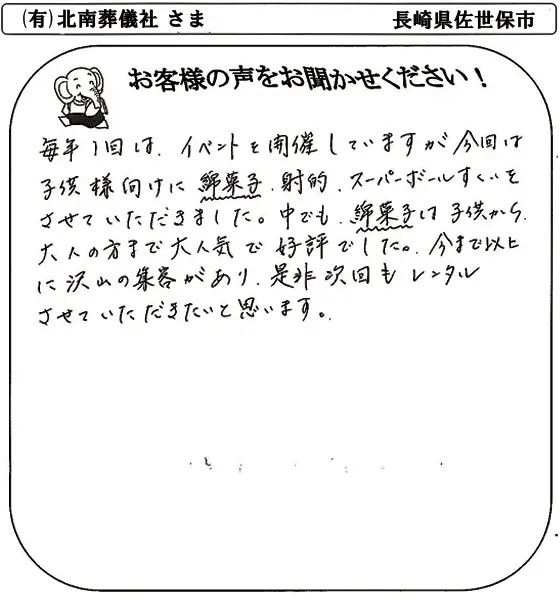 (有)北南葬儀社 さま 長崎県佐世保市
お客様の声をお聞かせください！
毎年1回は、イベントを開催していますが今回は
子供様向けに綿菓子、射的、スーパーボールすくいを
させていただきました。中でも、綿菓子は子供から、
大人の方まで大人気で好評でした。今まで以上
に沢山の集客があり、是非次回もレンタル
させていただきたいと思います。